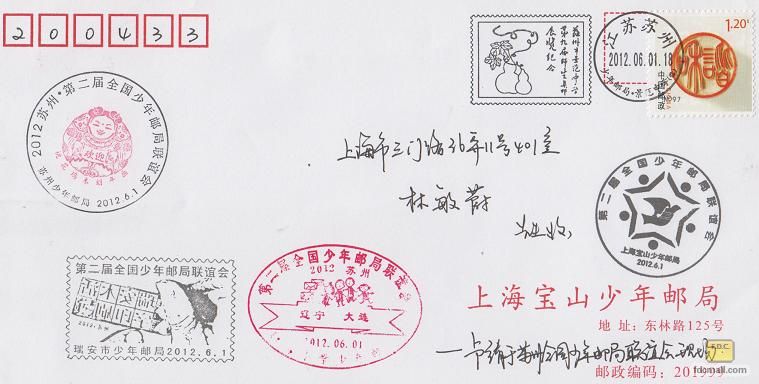 200433
苏州市景范中学
第九届师生集邮
展览纪念
江苏苏州
2012.06.01.18
1.20元
中国邮政
CHINA
2012 苏州·第二届全国少年邮局联谊会
欢迎
桃花坞木刻年画
苏州少年邮局 2012.6.1
上海市三门路36弄11号401室
林敏蔚
先生收
第二届全国少年邮局联谊会
上海宝山少年邮局
2012.6.1
第二届全国少年邮局联谊会
2012.苏州
瑞安市少年邮局2012.6.1
第二届全国少年邮局联谊会
2012 苏州
辽宁 大连
2012.06.01
上海宝山少年邮局
地址:东林路125号
邮政编码:201999
fdcmall.com